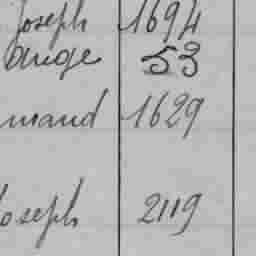 Joseph 1694
ange 53
mand 1629
Joseph 2119